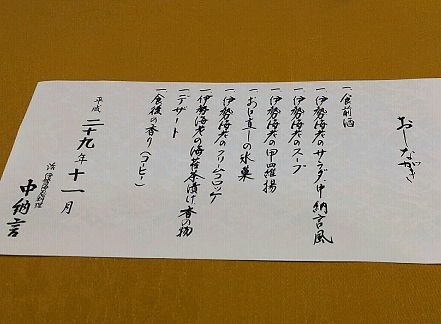 おしながき
一 食前酒
一 伊勢海老のサラダ中納言風
一 伊勢海老のスープ
一 伊勢海老の甲羅揚
一 お口直しの氷菓
一 伊勢海老のクリームコロッケ
一 伊勢海老の海苔茶漬け 香の物
一 デザート
一 食後の香り(コーヒー)
平成二十九年十一月
活伊勢海老料理 中納言